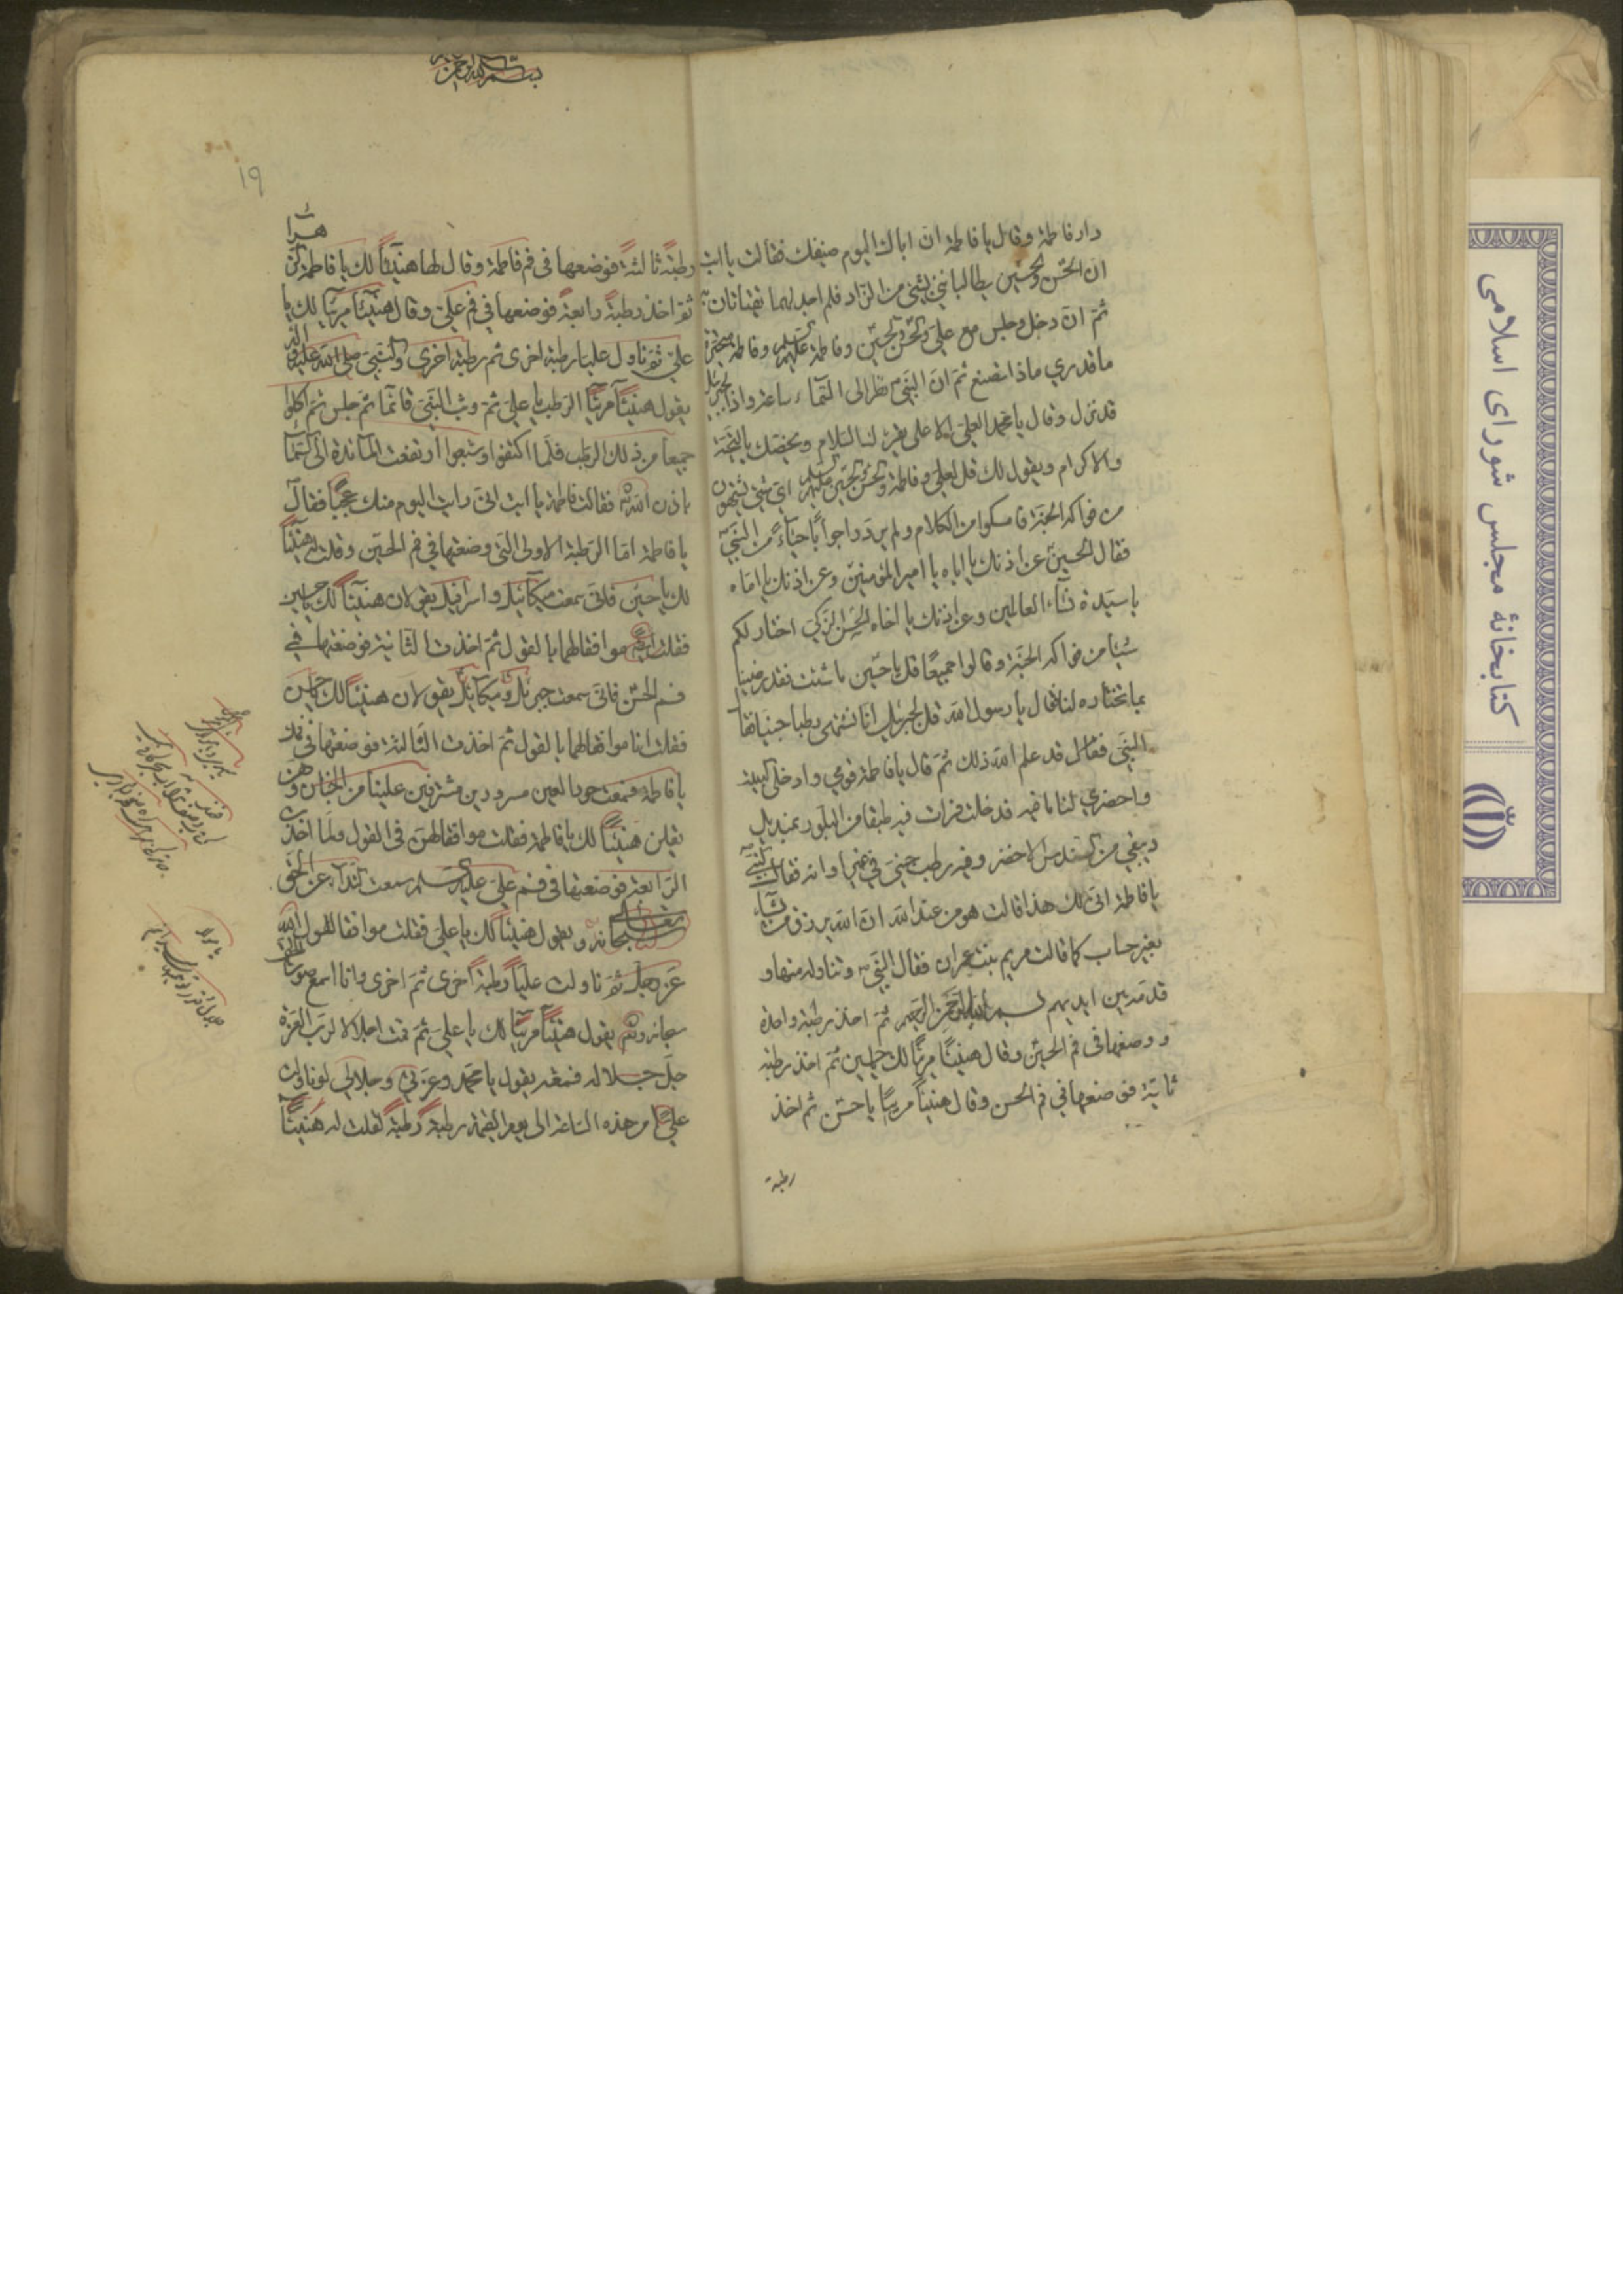 دار فاطمة وقال يا فاطمة ان اباك اليوم ضيفك فقالت يا ابت
ان الحسن والحسين يطالباني بشئ من الزاد فلم اجد لهما يقتاتان به
ثم ان دخل وجلس مع علي والحسن والحسين وفاطمة عليهم السلم وفاطمة متحيرة
ما تدري ماذا تصنع ثم ان النبي نظر الى السماء ساعة واذا بجبرئيل
قد نزل وقال يا محمد العلي الاعلى يقرئك السلام ويخصك بالتحية
والاكرام ويقول لك قل لعلي وفاطمة والحسن والحسين عليهم السلم اي شئ تشتهون
من فواكه الجنة فامسكوا من الكلام ولم يردوا جوابا حياء من النبي
فقال الحسين عن اذنك يا اباه يا امير المؤمنين وعن اذنك يا اماه
يا سيدة نساء العالمين وعن اذنك يا اخاه الحسن الزكي اختار لكم
شيئا من فواكه الجنة وقالوا جميعا قل يا حسين ما شئت فقد رضينا
بما تختاره لنا فقال يا رسول الله قل لجبرئيل انا نشتهى رطبا جنيا فقال
النبي فقال قد علم الله ذلك ثم قال يا فاطمة قومي وادخلي البيت
واحضري لنا ما فيه فدخلت فرات فيه طبقا من البلور بمنديل
ديبقي من السندس الاخضر وفيه رطب جني في غير اوانه فقال النبي
يا فاطمة انى لك هذا قالت هو من عند الله ان الله يرزق من يشاء
بغير حساب كما قالت مريم بنت عمران فقال النبي وتناوله منها و
قدمه بين ايديهم بسم الله الرحمن الرحيم ثم اخذ رطبة واحدة
ووضعها في فم الحسين وقال هنيئا مريئا لك يا حسين ثم اخذ رطبة
ثانية فوضعها في فم الحسن وقال هنيئا مريئا يا حسن ثم اخذ
رطبة
بسم الله الرحمن
١٩
رطبة ثالثة فوضعها في فم فاطمة وقال لها هنيئا لك يا فاطمة الزهرا
ثم اخذ رطبة رابعة فوضعها في فم علي وقال هنيئا مريئا لك يا
علي ثم ناول عليا رطبة اخرى ثم رطبة اخرى والنبي صلى الله عليه واله
يقول هنيئا مريئا الرطب يا علي ثم وثب النبي قائما ثم جلس ثم اكلوا
جميعا من ذلك الرطب فلما اكتفوا وشبعوا ارتفعت المائدة الى السما
باذن الله فقالت فاطمة يا ابت اني رايت اليوم منك عجبا فقال
يا فاطمة اما الرطبة الاولى التي وضعتها في فم الحسين وقلت له هنيئا
لك يا حسين فاني سمعت ميكائيل واسرافيل يقولان هنيئا لك يا حسين
فقلت ايضا موافقا لهما بالقول ثم اخذت الثانية فوضعتها في
فم الحسن فاني سمعت جبرئيل وميكائيل يقولان هنيئا لك يا حسن
فقلت انا موافقا لهما بالقول ثم اخذت الثالثة فوضعتها في فمك
يا فاطمة فسمعت حور العين مسرورين مشرفين علينا من الجنان وهن
يقلن هنيئا لك يا فاطمة فقلت موافقا لهن في القول ولما اخذت
الرابعة فوضعتها في فم علي عليه السلم سمعت النداء عن الحق
سبحانه ويقول هنيئا لك يا علي فقلت موافقا لقول الله
عز وجل ثم ناولت عليا رطبة اخرى ثم اخرى وانا اسمع صوت الحق
سبحانه يقول هنيئا مريئا لك يا علي ثم قمت اجلالا لرب العزة
جل جلاله فسمعته يقول يا محمد وعزتي وجلالي لو ناولت
عليا من هذه الساعة الى يوم القيمة رطبة رطبة لقلت له هنيئا
كتابخانۀ مجلس شورای اسلامی